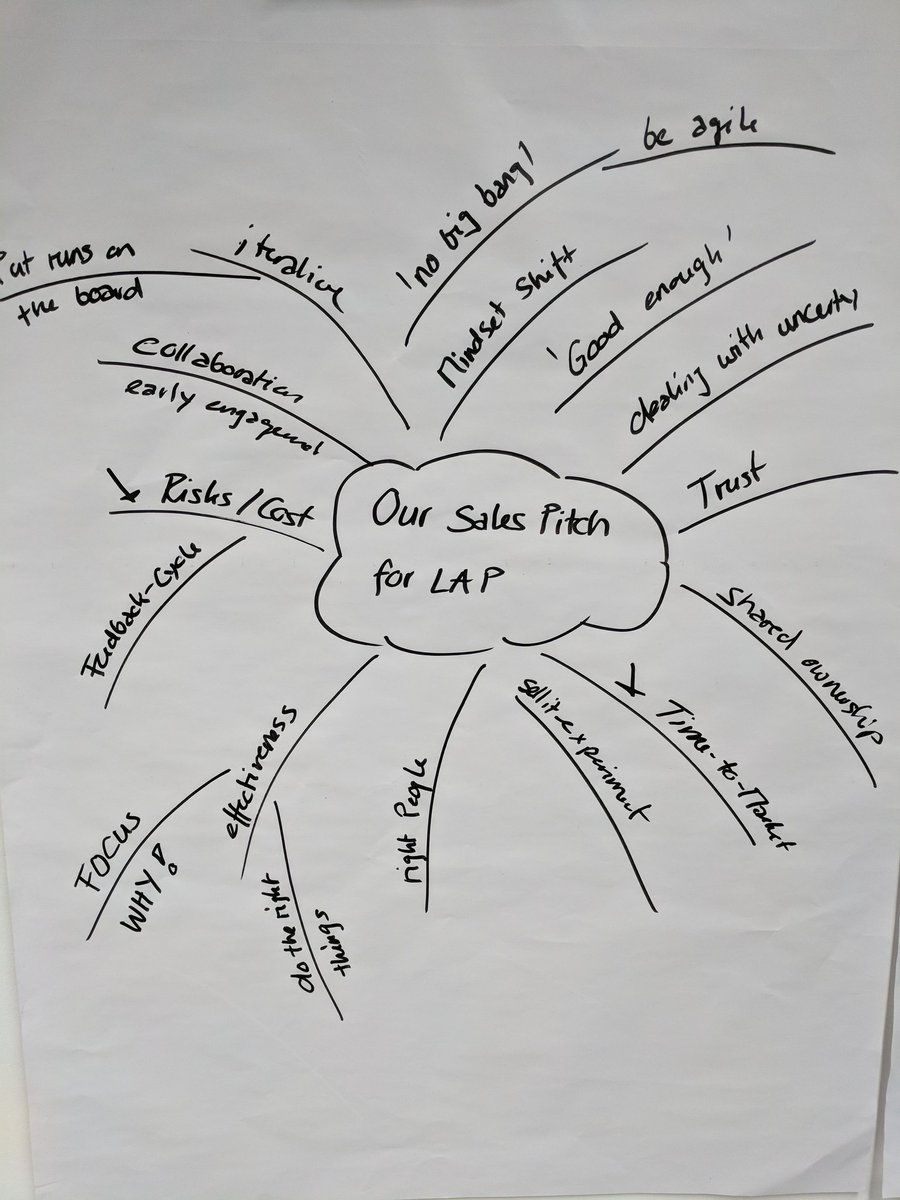 Our Sales Pitch
for LAP
'no big bang'
be agile
Mindset Shift
'Good enough'
dealing with uncerty
Trust
shared ownership
↓ Time-to-Market
sell it-experiment
right People
effectiveness
do the right
things
FOCUS
WHY!
↘ Risks/Cost
Feedback-Cycle
collaboration
early engagement
iterative
Put runs on
the board